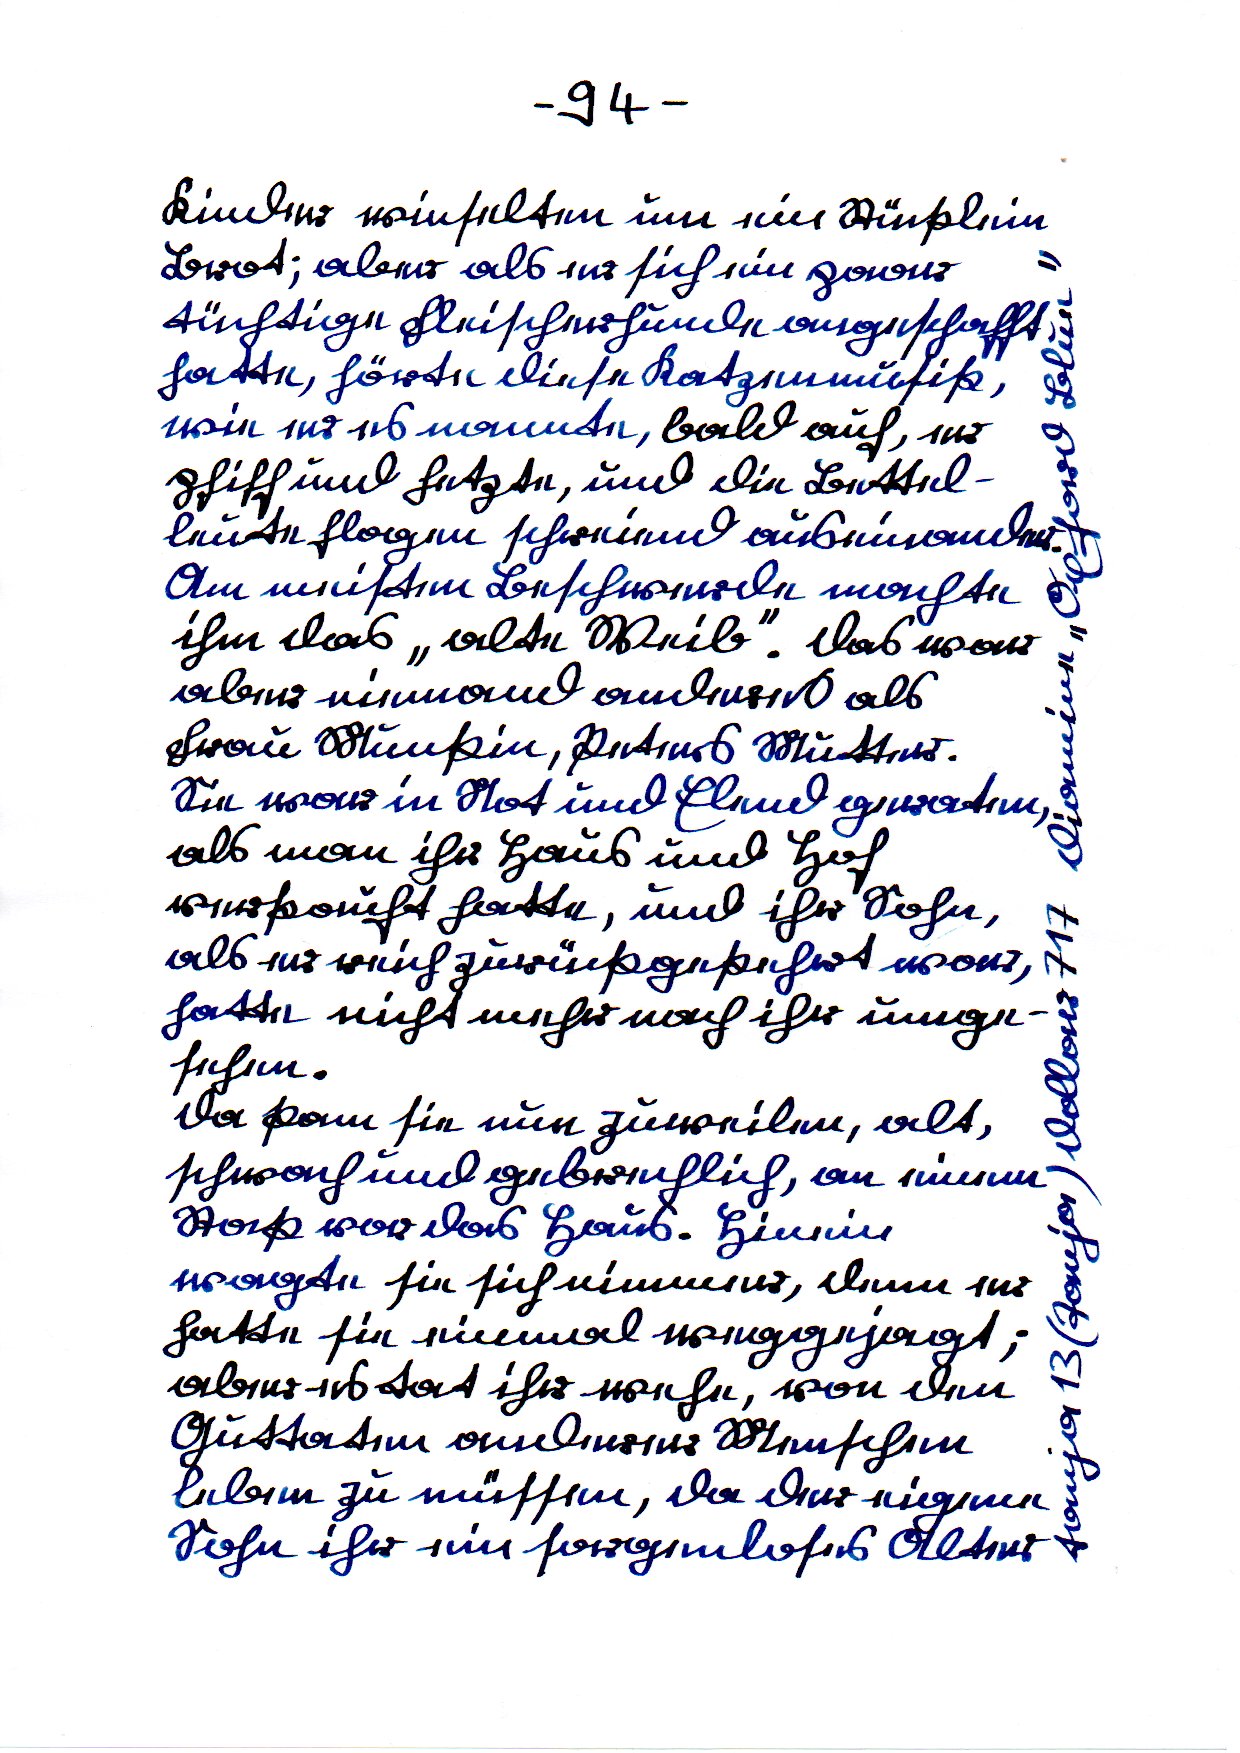 -94-
Kinder winselten um ein Stücklein
Brot; aber als er sich ein paar
tüchtige Fleischerhunde angeschafft
hatte, hörte diese Katzenmusik,
wie er es nannte, bald auf, er
pfiff und hetzte, und die Bettel-
leute flogen schreiend auseinander.
Am meisten Beschwerde machte
ihm das „alte Weib". Das war
aber niemand anderes als
Frau Munkin, Peters Mutter.
Sie war in Not und Elend geraten,
als man ihr Haus und Hof
verkauft hatte, und ihr Sohn,
als er reich zurückgekehrt war,
hatte nicht mehr nach ihr umge-
sehen.
Da kam sie nun zuweilen, alt,
schwach und gebrechlich, an einem
Stock vor das Haus. Hinein
wagte sie sich nimmer, denn er
hatte sie einmal weggejagt;
aber es tat ihr wehe, von den
Guttaten anderer Menschen
leben zu müssen, da der eigene
Sohn ihr ein sorgenloses Alter
13 (Janja) Dollar 717 Diamine „Oxford Blue"